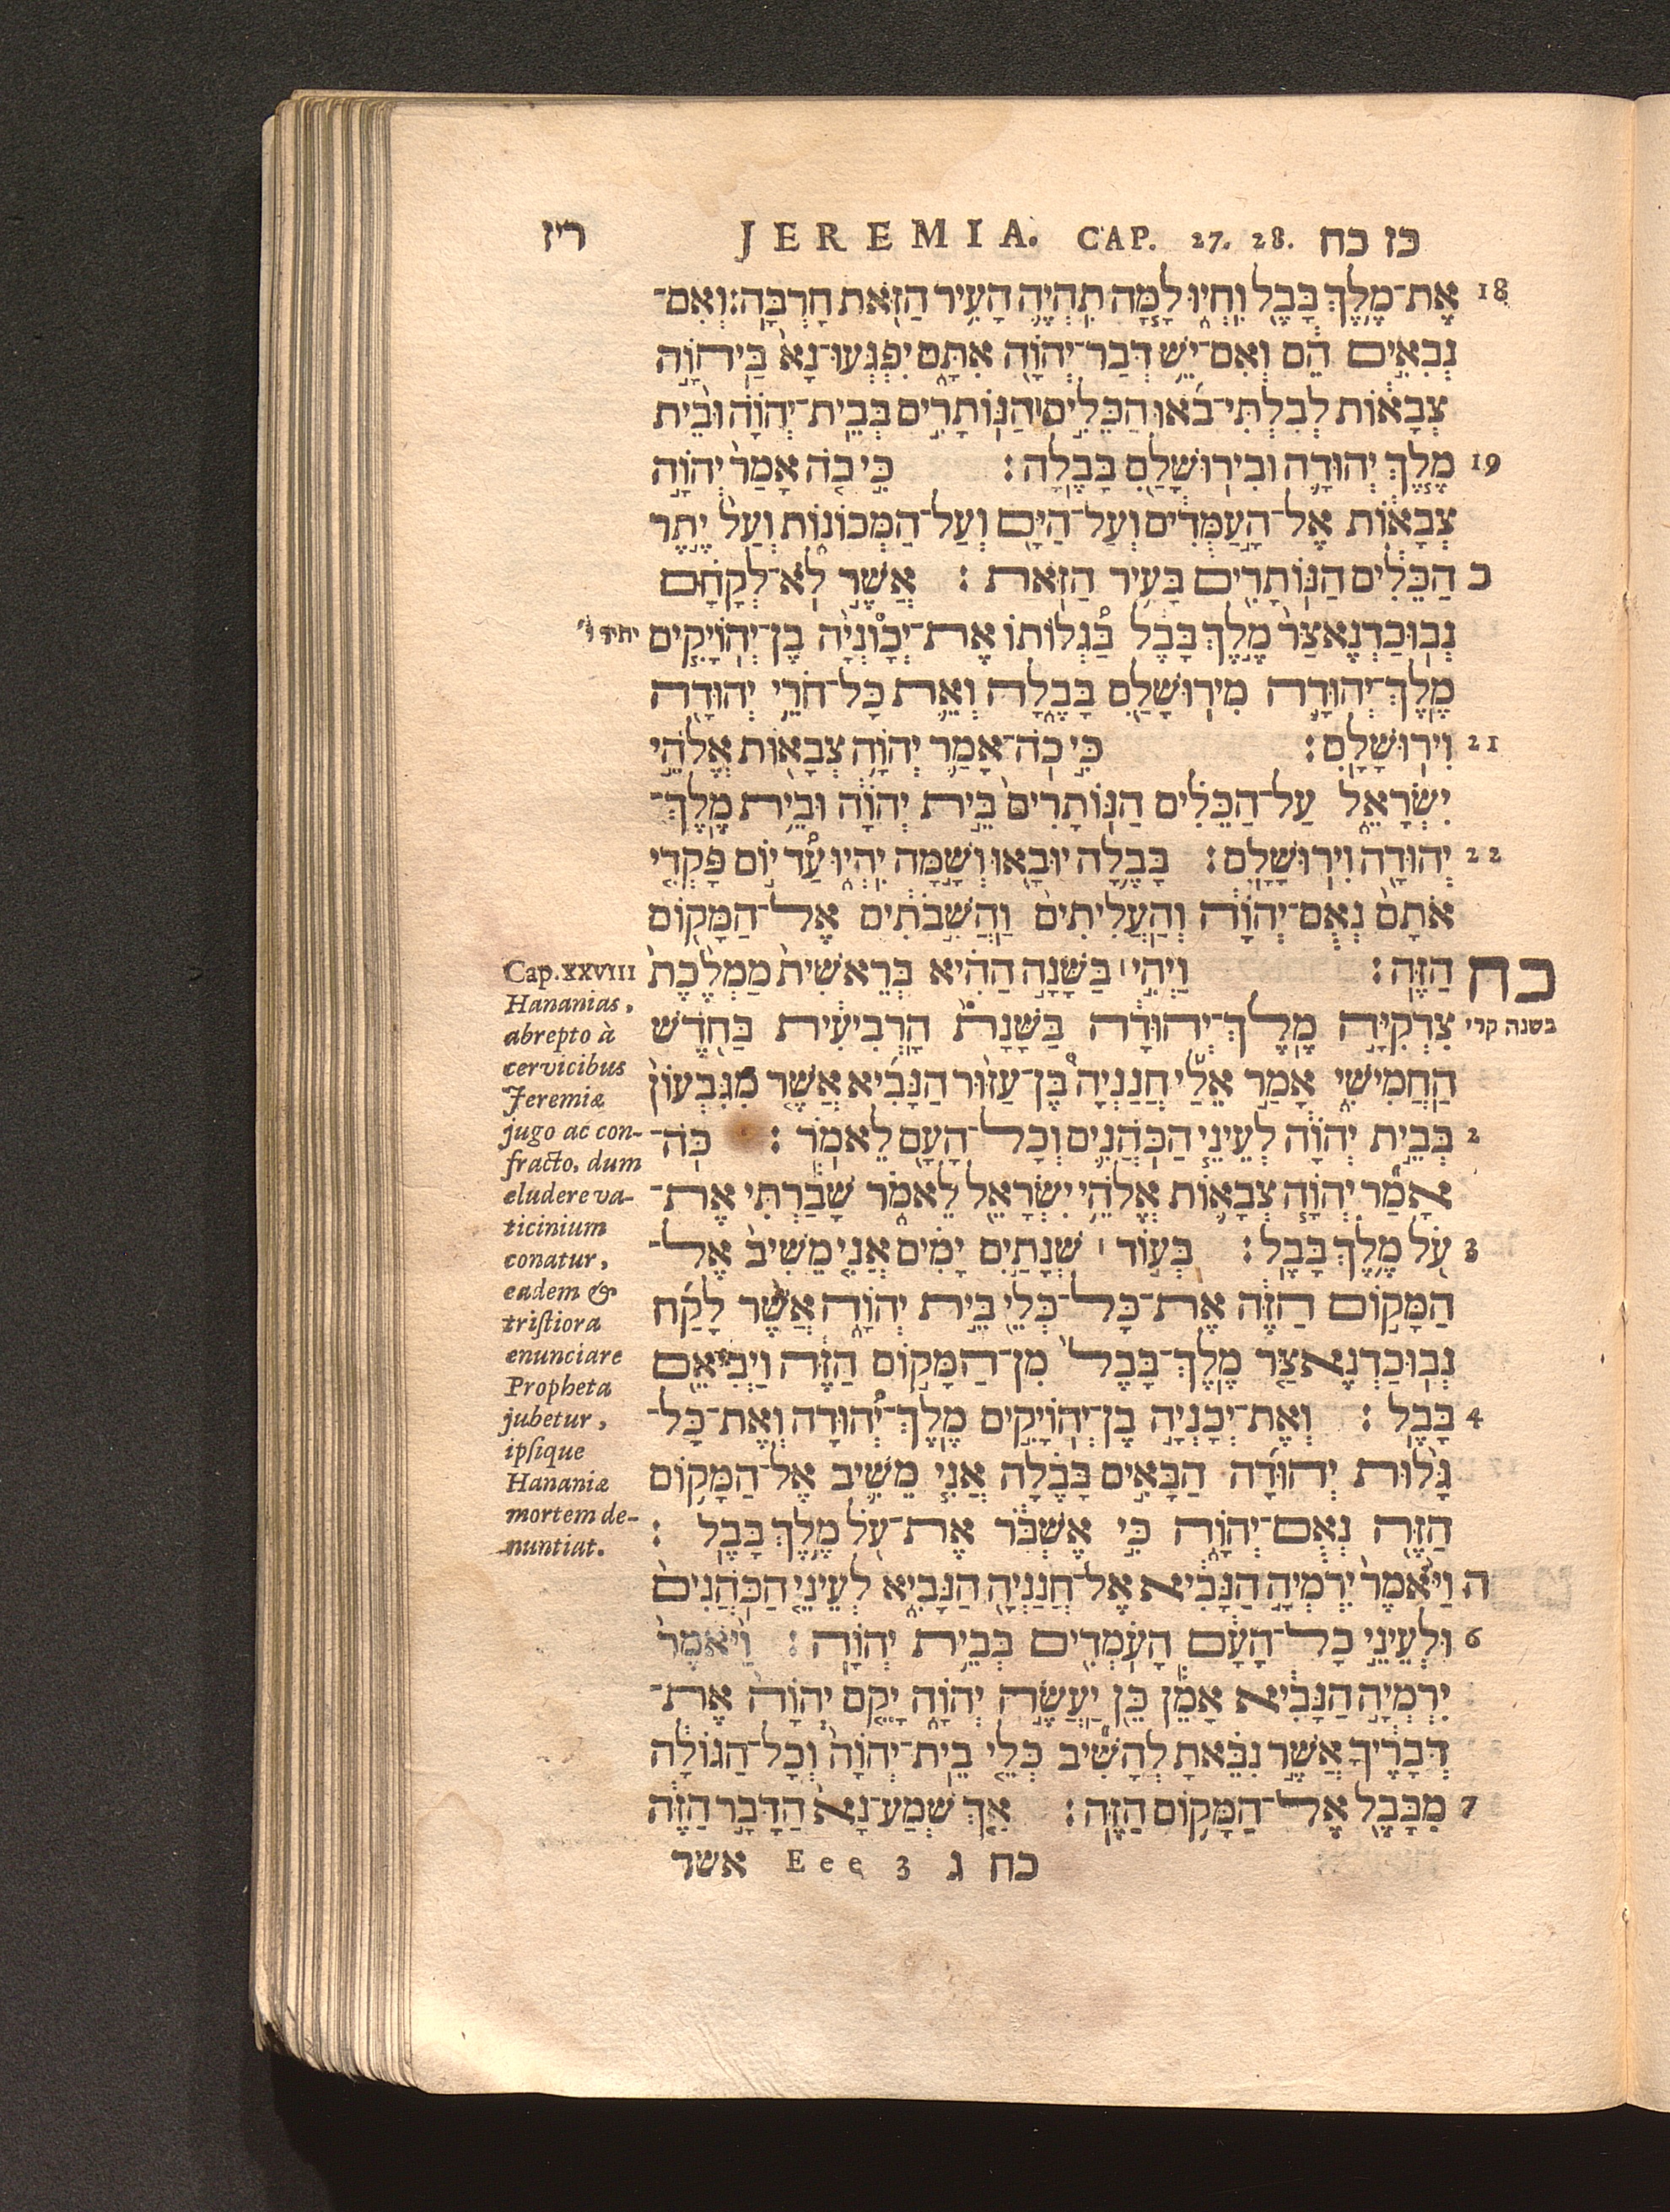 ריז JEREMIA. CAP. 27. 28. כז כח
18 אֶת־מֶלֶךְ בָּבֶל וִחְיוּ לָמָּה תִהְיֶה הָעִיר הַזֹּאת חָרְבָּה: וְאִם־
נְבִאִים הֵם וְאִם־יֵשׁ דְּבַר־יְהוָֹה אִתָּם יִפְגְּעוּ־נָא בַּיהוָֹה
צְבָאוֹת לְבִלְתִּי־בֹאוּ הַכֵּלִים הַנּוֹתָרִים בְּבֵית־יְהוָֹה וּבֵית
19 מֶלֶךְ יְהוּדָה וּבִירוּשָׁלִַם בָּבֶלָה: כִּי כֹה אָמַר יְהוָֹה
צְבָאוֹת אֶל־הָעַמֻּדִים וְעַל־הַיָּם וְעַל־הַמְּכוֹנוֹת וְעַל יֶתֶר
כ הַכֵּלִים הַנּוֹתָרִים בָּעִיר הַזֹּאת: אֲשֶׁר לֹא־לְקָחָם
נְבוּכַדְנֶאצַּר מֶלֶךְ בָּבֶל בַּגְלוֹתוֹ אֶת־יְכָוֹנְיָה בֶן־יְהוֹיָקִים
מֶלֶךְ־יְהוּדָה מִירוּשָׁלִַם בָּבֶלָה וְאֵת כָּל־חֹרֵי יְהוּדָה
21 וִירוּשָׁלִָם: כִּי כֹה־אָמַר יְהוָֹה צְבָאוֹת אֱלֹהֵי
יִשְׂרָאֵל עַל־הַכֵּלִים הַנּוֹתָרִים בֵּית יְהוָֹה וּבֵית מֶלֶךְ־
22 יְהוּדָה וִירוּשָׁלִָם: בָּבֶלָה יוּבָאוּ וְשָׁמָּה יִהְיוּ עַד יוֹם פָּקְדִי
אֹתָם נְאֻם־יְהוָֹה וְהַעֲלִיתִים וַהֲשִׁבֹתִים אֶל־הַמָּקוֹם
כח הַזֶּה: וַיְהִי ׀ בַּשָּׁנָה הַהִיא בְּרֵאשִׁית מַמְלֶכֶת
בשנה קרי צִדְקִיָּה מֶלֶךְ־יְהוּדָה בַּשָּׁנַת הָרְבִיעִית בַּחֹדֶשׁ
הַחֲמִישִׁי אָמַר אֵלַי חֲנַנְיָה בֶן־עַזּוּר הַנָּבִיא אֲשֶׁר מִגִּבְעוֹן
2 בְּבֵית יְהוָֹה לְעֵינֵי הַכֹּהֲנִים וְכָל־הָעָם לֵאמֹר: כֹּה־
אָמַר יְהוָֹה צְבָאוֹת אֱלֹהֵי יִשְׂרָאֵל לֵאמֹר שָׁבַרְתִּי אֶת־
3 עֹל מֶלֶךְ בָּבֶל: בְּעוֹד ׀ שְׁנָתַיִם יָמִים אֲנִי מֵשִׁיב אֶל־
הַמָּקוֹם הַזֶּה אֶת־כָּל־כְּלֵי בֵּית יְהוָֹה אֲשֶׁר לָקַח
נְבוּכַדְנֶאצַּר מֶלֶךְ־בָּבֶל מִן־הַמָּקוֹם הַזֶּה וַיְבִיאֵם
4 בָּבֶל: וְאֶת־יְכָנְיָה בֶן־יְהוֹיָקִים מֶלֶךְ־יְהוּדָה וְאֶת־כָּל־
גָּלוּת יְהוּדָה הַבָּאִים בָּבֶלָה אֲנִי מֵשִׁיב אֶל־הַמָּקוֹם
הַזֶּה נְאֻם־יְהוָֹה כִּי אֶשְׁבֹּר אֶת־עֹל מֶלֶךְ בָּבֶל:
ה וַיֹּאמֶר יִרְמְיָה הַנָּבִיא אֶל־חֲנַנְיָה הַנָּבִיא לְעֵינֵי הַכֹּהֲנִים
6 וּלְעֵינֵי כָל־הָעָם הָעֹמְדִים בְּבֵית יְהוָֹה: וַיֹּאמֶר
יִרְמְיָה הַנָּבִיא אָמֵן כֵּן יַעֲשֶׂה יְהוָֹה יָקֵם יְהוָֹה אֶת־
דְּבָרֶיךָ אֲשֶׁר נִבֵּאתָ לְהָשִׁיב כְּלֵי בֵית־יְהוָֹה וְכָל־הַגּוֹלָה
7 מִבָּבֶל אֶל־הַמָּקוֹם הַזֶּה: אַךְ שְׁמַע־נָא הַדָּבָר הַזֶּה
כח ג Eee 3 אשר
Cap. XXVIII
Hananias,
abrepto à
cervicibus
Jeremiæ
jugo ac con-
fracto, dum
eludere va-
ticinium
conatur,
eadem &
tristiora
enunciare
Propheta
jubetur,
ipsique
Hananiæ
mortem de-
nuntiat.